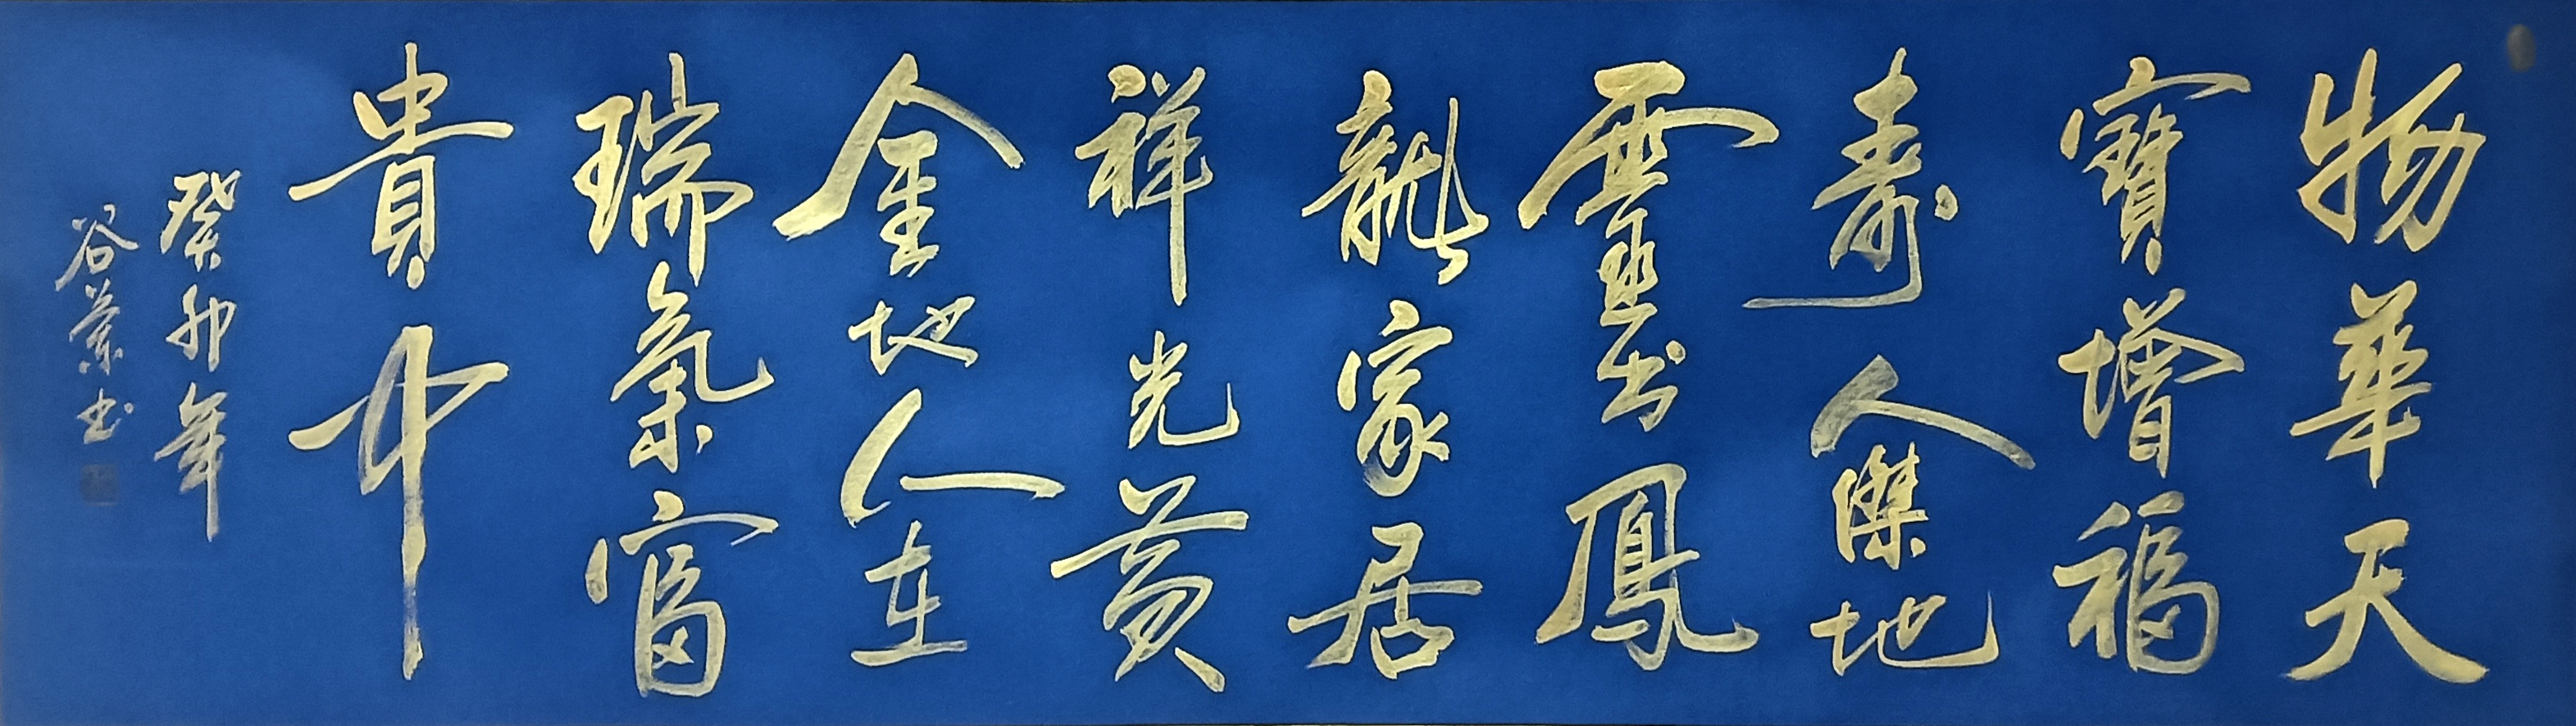 物華天
寶增福
壽人傑地
靈出鳳
龍家居
祥光黃
金地人在
瑞氣富
貴中
癸卯年
谷業书